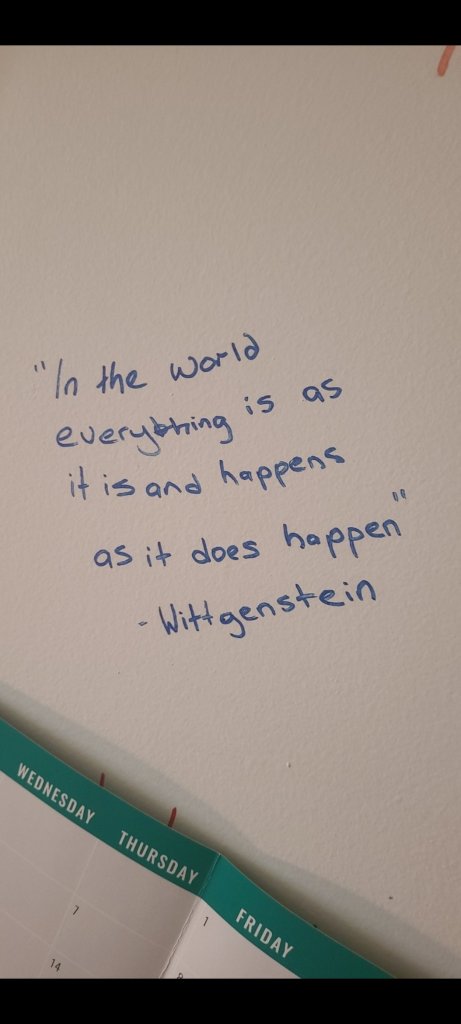 "In the world
everything is as
it is and happens
as it does happen"
- Wittgenstein
WEDNESDAY THURSDAY FRIDAY
7 1
14 8